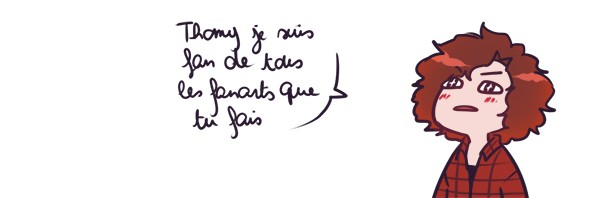 Thomy je suis
fan de tous
les fanarts que
tu fais